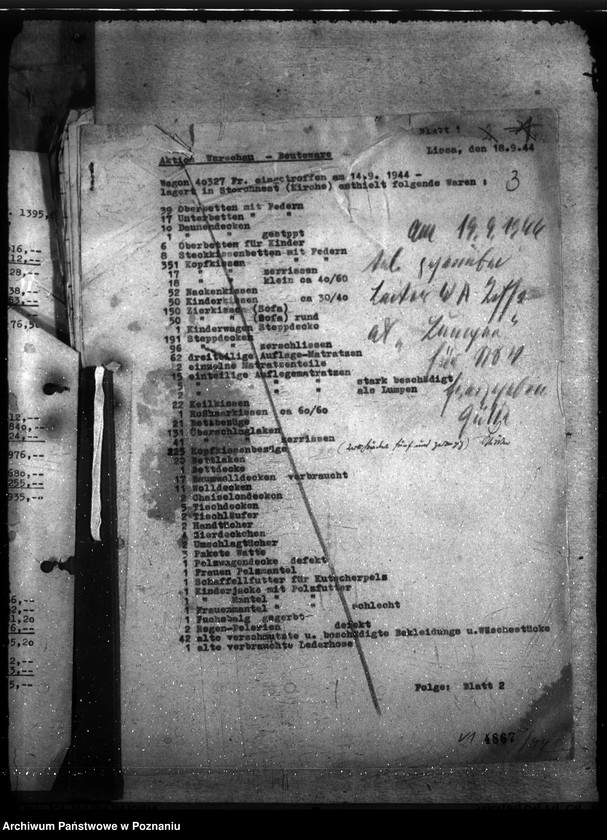 Blatt 1
Aktion Warschau - Beuteware
Lissa, den 18.9.44
Wagon 40327 Fr. eingetroffen am 14.9. 1944 -
lagert in Storchnest (Kirche) enthielt folgende Waren :
3
39 Oberbetten mit Federn
17 Unterbetten " "
10 Daunendecken
1 " gestppt
6 Oberbetten für Kinder
8 Steckkissenbetten mit Federn
351 Kopfkissen "
17 " " zerrissen
18 " " klein ca 40/60
52 Nackenkissen
50 Kinderkissen ca 30/40
150 Zierkissen (Sofa)
50 " (Sofa) rund
1 Kinderwagen Steppdecke
191 Steppdecken
96 " zerschlissen
62 dreiteilige Auflage-Matratzen
2 einzelne Matratzenteile
15 einteilige Auflegematratzen
2 " " " stark beschädigt
2 " " " als Lumpen
22 Keilkissen
1 Roßhaarkissen ca 60/60
21 Bettbezüge
131 Überschlaglaken
41 " zerrissen
225 Kopfkissenbezüge
20 Bettlaken
1 Bettdecke
17 Baumwolldecken verbraucht
11 Wolldecken
2 Chaiselondecken
5 Tischdecken
2 Tischläufer
2 Handtücher
4 Zierdeckchen
2 Umschlagtücher
3 Pakete Watte
1 Pelzwagendecke defekt
1 Frauen Pelzmantel
1 Schaffellfutter für Kutscherpelz
1 Kinderjacke mit Pelzfutter
1 " Mantel " "
1 Frauenmantel " " schlecht
1 Fuchsbalg gegerbt
2 Regen-Pelerien defekt
42 alte verschmutzte u. beschädigte Bekleidungs u.Wäschestücke
1 alte verbrauchte Lederhose
am 19.9.1944
für NSV
freigegeben
Folge: Blatt 2
VI 4867/44
1395,
Archiwum Państwowe w Poznaniu